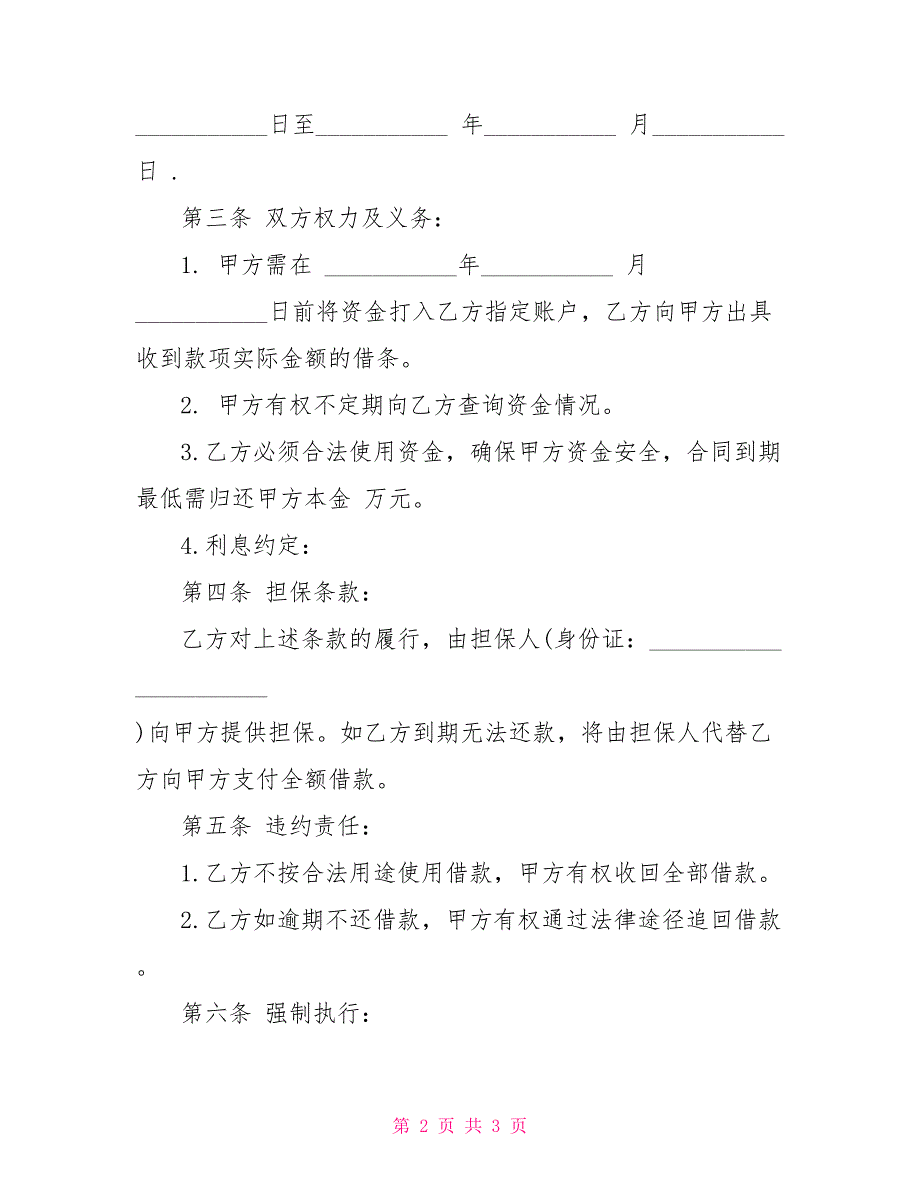 ___________日至___________ 年___________ 月___________
日 .
第三条 双方权力及义务：
1. 甲方需在 ___________年___________ 月
___________日前将资金打入乙方指定账户，乙方向甲方出具
收到款项实际金额的借条。
2. 甲方有权不定期向乙方查询资金情况。
3.乙方必须合法使用资金，确保甲方资金安全，合同到期
最低需归还甲方本金 万元。
4.利息约定：
第四条 担保条款：
乙方对上述条款的履行，由担保人(身份证：___________
___________
)向甲方提供担保。如乙方到期无法还款，将由担保人代替乙
方向甲方支付全额借款。
第五条 违约责任：
1.乙方不按合法用途使用借款，甲方有权收回全部借款。
2.乙方如逾期不还借款，甲方有权通过法律途径追回借款
。
第六条 强制执行：
第 2 页 共 3 页